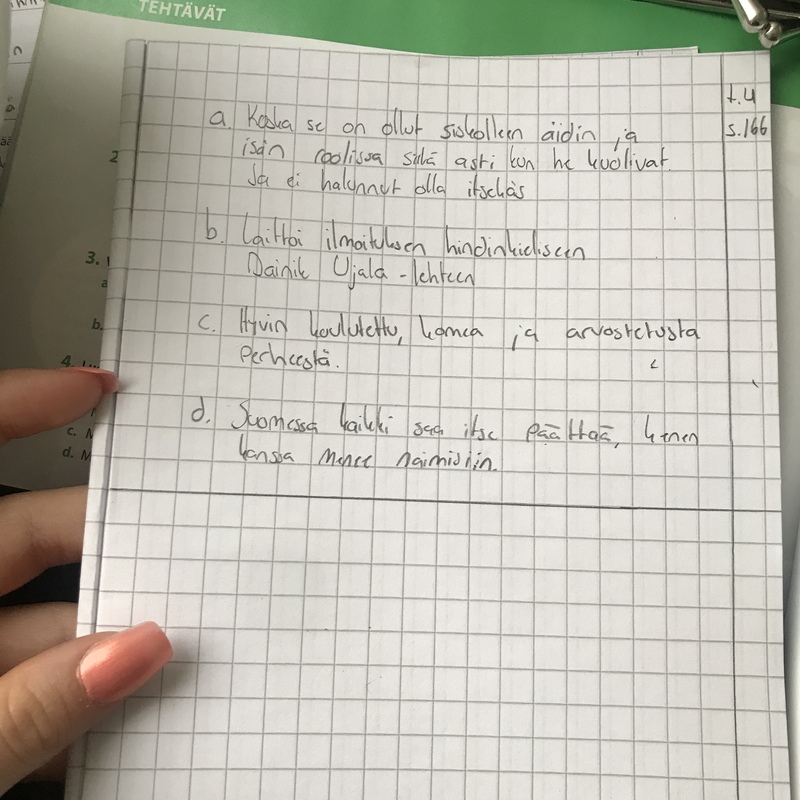 TEHTÄVÄT
t.4
s.166
a. Koska se on ollut siskolleen äidin ja
isän roolissa siitä asti kun he kuolivat.
Ja ei halunnut olla itsekäs
b. Laittoi ilmoituksen hindinkieliseen
Dainik Ujala -lehteen
c. Hyvin koulutettu, komea ja arvostetusta
perheestä.
d. Suomessa kaikki saa itse päättää, kenen
kanssa menee naimisiin.
2
3.
a
b.
4.
c. M
d. M